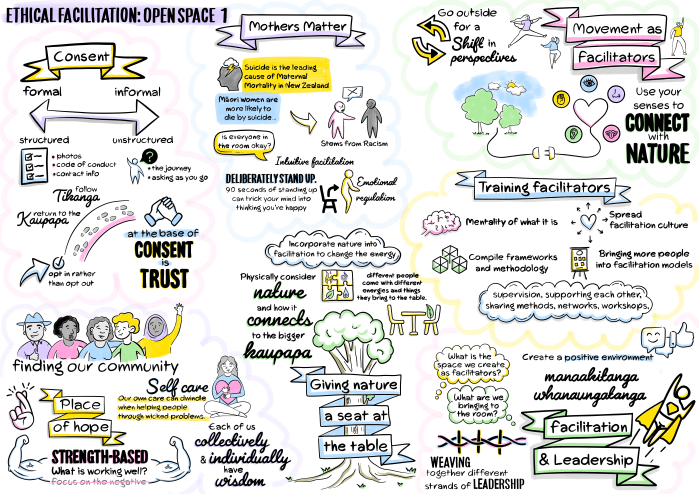 ETHICAL FACILITATION: OPEN SPACE 1
Consent
formal
informal
structured
unstructured
• photos
• code of conduct
• contact info
• the journey
• asking as you go
follow
Tikanga
return to the
Kaupapa
opt in rather
than opt out
at the base of
CONSENT
is
TRUST
finding our community
Place
of hope
Self care
Our own care can dwindle
when helping people
through wicked problems.
STRENGTH-BASED
What is working well?
focus on the negative
Mothers Matter
Suicide is the leading
cause of Maternal
Mortality in New Zealand
Māori women are
more likely to
die by suicide..
Stems from Racism
Is everyone in
the room okay?
Intuitive facilitation
DELIBERATELY STAND UP.
90 seconds of standing up
can trick your mind into
thinking you're happy
Emotional
regulation
Incorporate nature into
facilitation to change the energy
Physically consider
nature
and how it
connects
to the bigger
kaupapa
different people
come with different
energies and things
they bring to the table.
Giving nature
a seat at
the table
Each of us
collectively
& individually
have
wisdom
Go outside
for a
Shift in
perspectives
Movement as
facilitators
Use your
senses to
CONNECT
with
NATURE
Training facilitators
Mentality of what it is
Spread
facilitation culture
Compile frameworks
and methodology
Bringing more people
into facilitation models
supervision, supporting each other,
sharing methods, networks, workshops,
What is the
space we create
as facilitators?
What are we
bringing to
the room?
Create a positive environment
manaakitanga
whanaungatanga
facilitation
& Leadership
WEAVING
together different
strands of LEADERSHIP